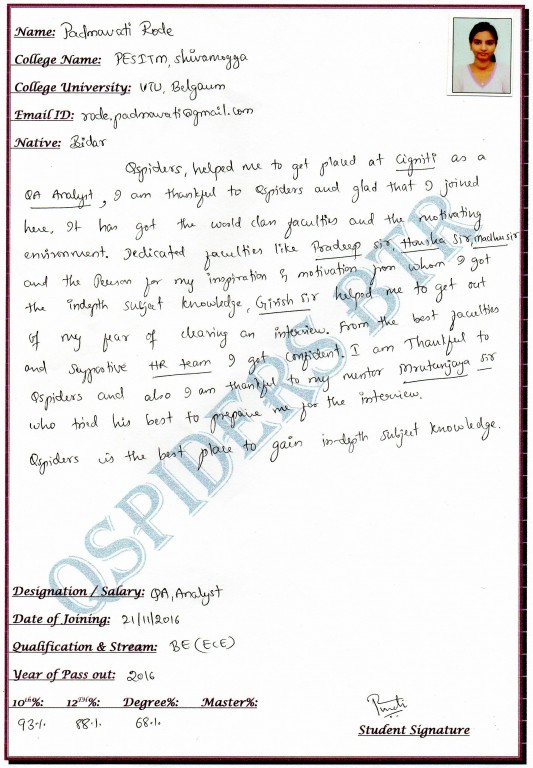 Name: Padmavati Rode
College Name: PESITM, Shivamogga
College University: VTU, Belgaum
Email ID: rode.padmavati@gmail.com
Native: Bidar
Qspiders, helped me to get placed at Cigniti as a
QA Analyst, I am thankful to Qspiders and glad that I joined
here. It has got the world class faculties and the motivating
environment. Dedicated faculties like Pradeep sir, Harsha Sir, madhu sir
and the Person for my inspiration & motivation from whom I got
the indepth subject knowledge, Girish Sir helped me to get out
of my fear of clearing an interview. From the best faculties
and supportive HR team I got confident. I am Thankful to
Qspiders and also I am thankful to my mentor Mrutunjaya Sir
who tried his best to prepare me for the interview.
Qspiders is the best place to gain in-depth subject knowledge.
QSPIDERS BTR
Designation / Salary: QA, Analyst
Date of Joining: 21/11/2016
Qualification & Stream: BE (ECE)
Year of Pass out: 2016
10th%: 12TH%: Degree%: Master%:
93% 88% 68%
Student Signature